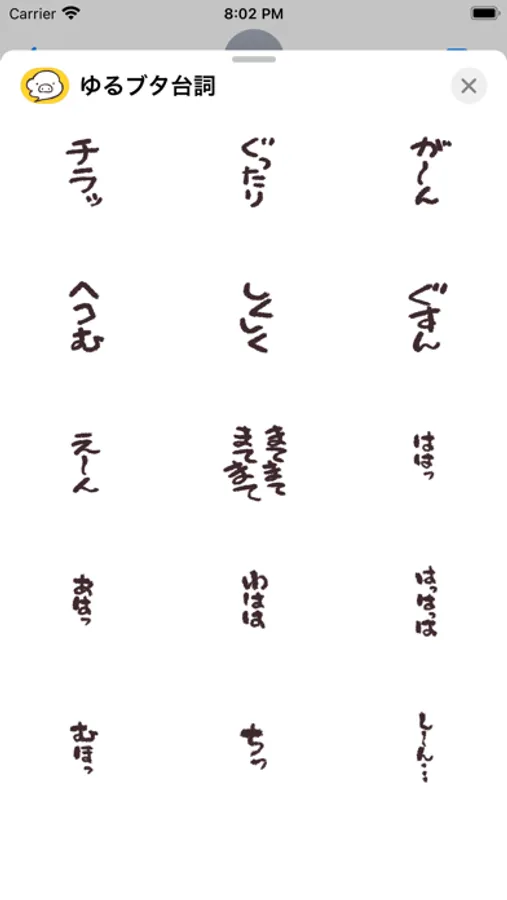 Carrier 8:02 PM
ゆるブタ台詞
チラッ
ぐったり
がーん
へつむ
しくしく
ぐすん
えーん
まてまて
まてまて
ははっ
あはっ
わはは
はっはっは
むほっ
ちっ
しーん…